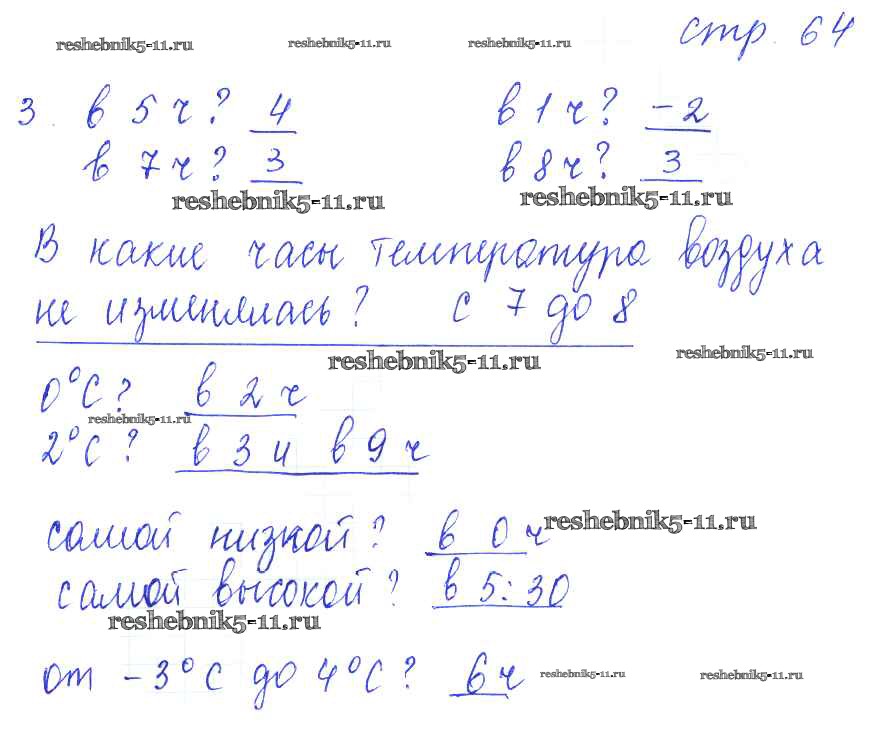 стр. 64
reshebnik5-11.ru reshebnik5-11.ru reshebnik5-11.ru
3. в 5 ч? 4 в 1 ч? -2
в 7 ч? 3 в 8 ч? 3
reshebnik5-11.ru reshebnik5-11.ru
В какие часы температура воздуха
не изменялась? с 7 до 8
reshebnik5-11.ru reshebnik5-11.ru
0°С? в 2 ч
reshebnik5-11.ru
2°С? в 3 и в 9 ч
самой низкой? в 0 ч
reshebnik5-11.ru
самой высокой? в 5:30
reshebnik5-11.ru
от -3°С до 4°С? 6 ч
reshebnik5-11.ru reshebnik5-11.ru